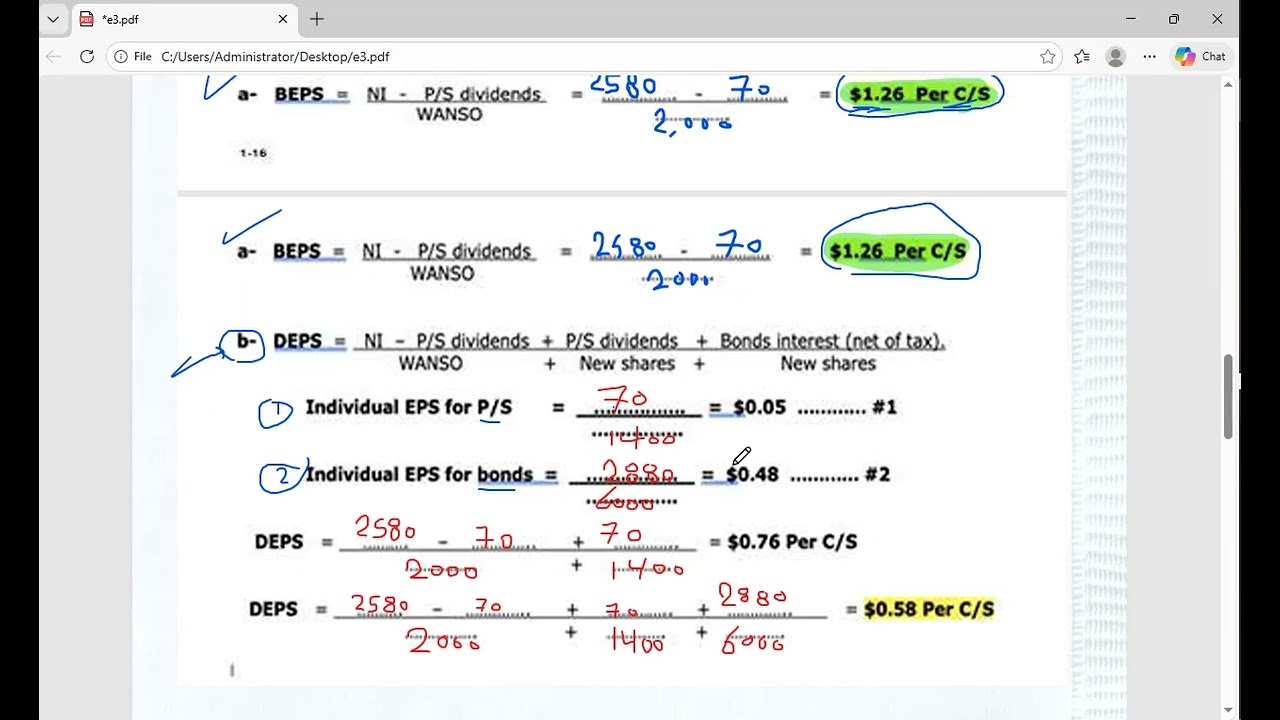 *e3.pdf
File C:/Users/Administrator/Desktop/e3.pdf
Chat
a- BEPS = NI - P/S dividends = 2580 - 70 = $1.26 Per C/S
WANSO 2,000
1-16
a- BEPS = NI - P/S dividends = 2580 - 70 = $1.26 Per C/S
WANSO 2000
b- DEPS = NI - P/S dividends + P/S dividends + Bonds interest (net of tax).
WANSO + New shares + New shares
1 Individual EPS for P/S = 70 = $0.05 ............ #1
1400
2 Individual EPS for bonds = 2880 = $0.48 ............ #2
6000
DEPS = 2580 - 70 + 70 = $0.76 Per C/S
2000 + 1400
DEPS = 2580 - 70 + 70 + 2880 = $0.58 Per C/S
2000 + 1400 + 6000